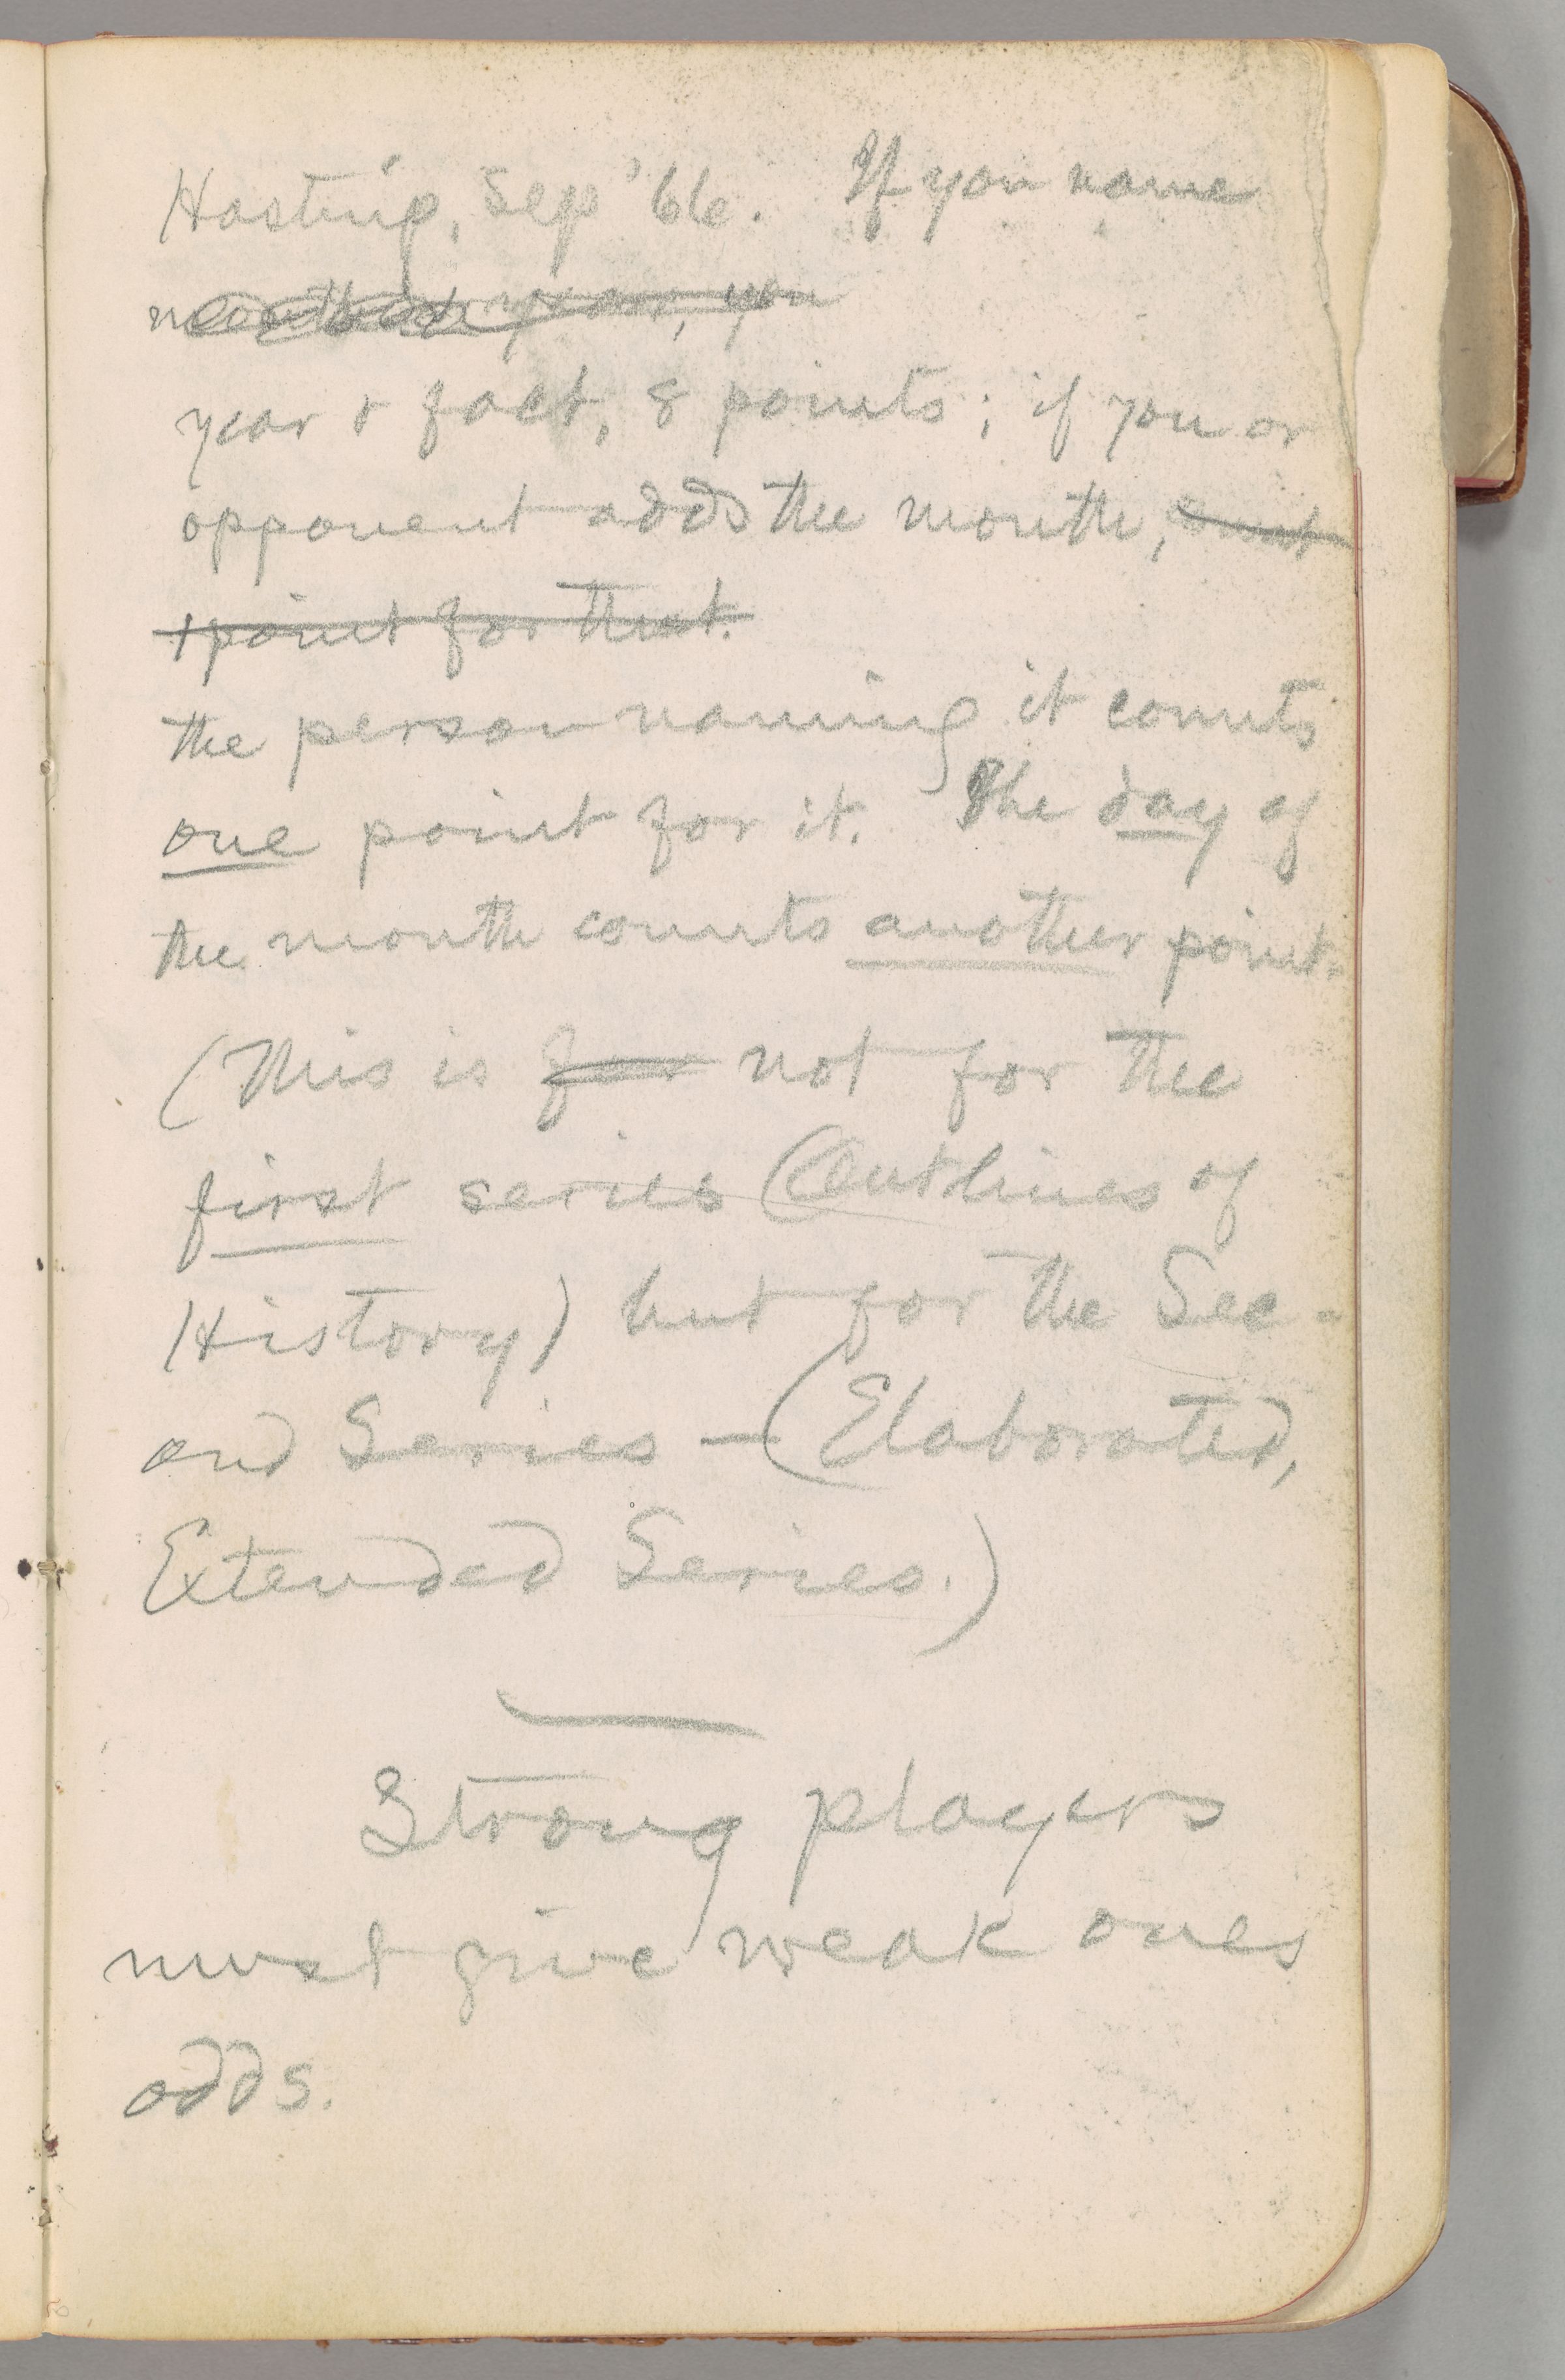 Hastings, Sep '66. If you name
year, you
year & fact, 8 points; if you or
opponent adds the month, count
1 point for that.
the person naming it counts
one point for it. The day of
the month counts another point.
(This is for not for the
first series (Outlines of
History) but for the Sec-
ond Series — (Elaborated,
Extended Series.)
Strong players
must give weak ones
odds.